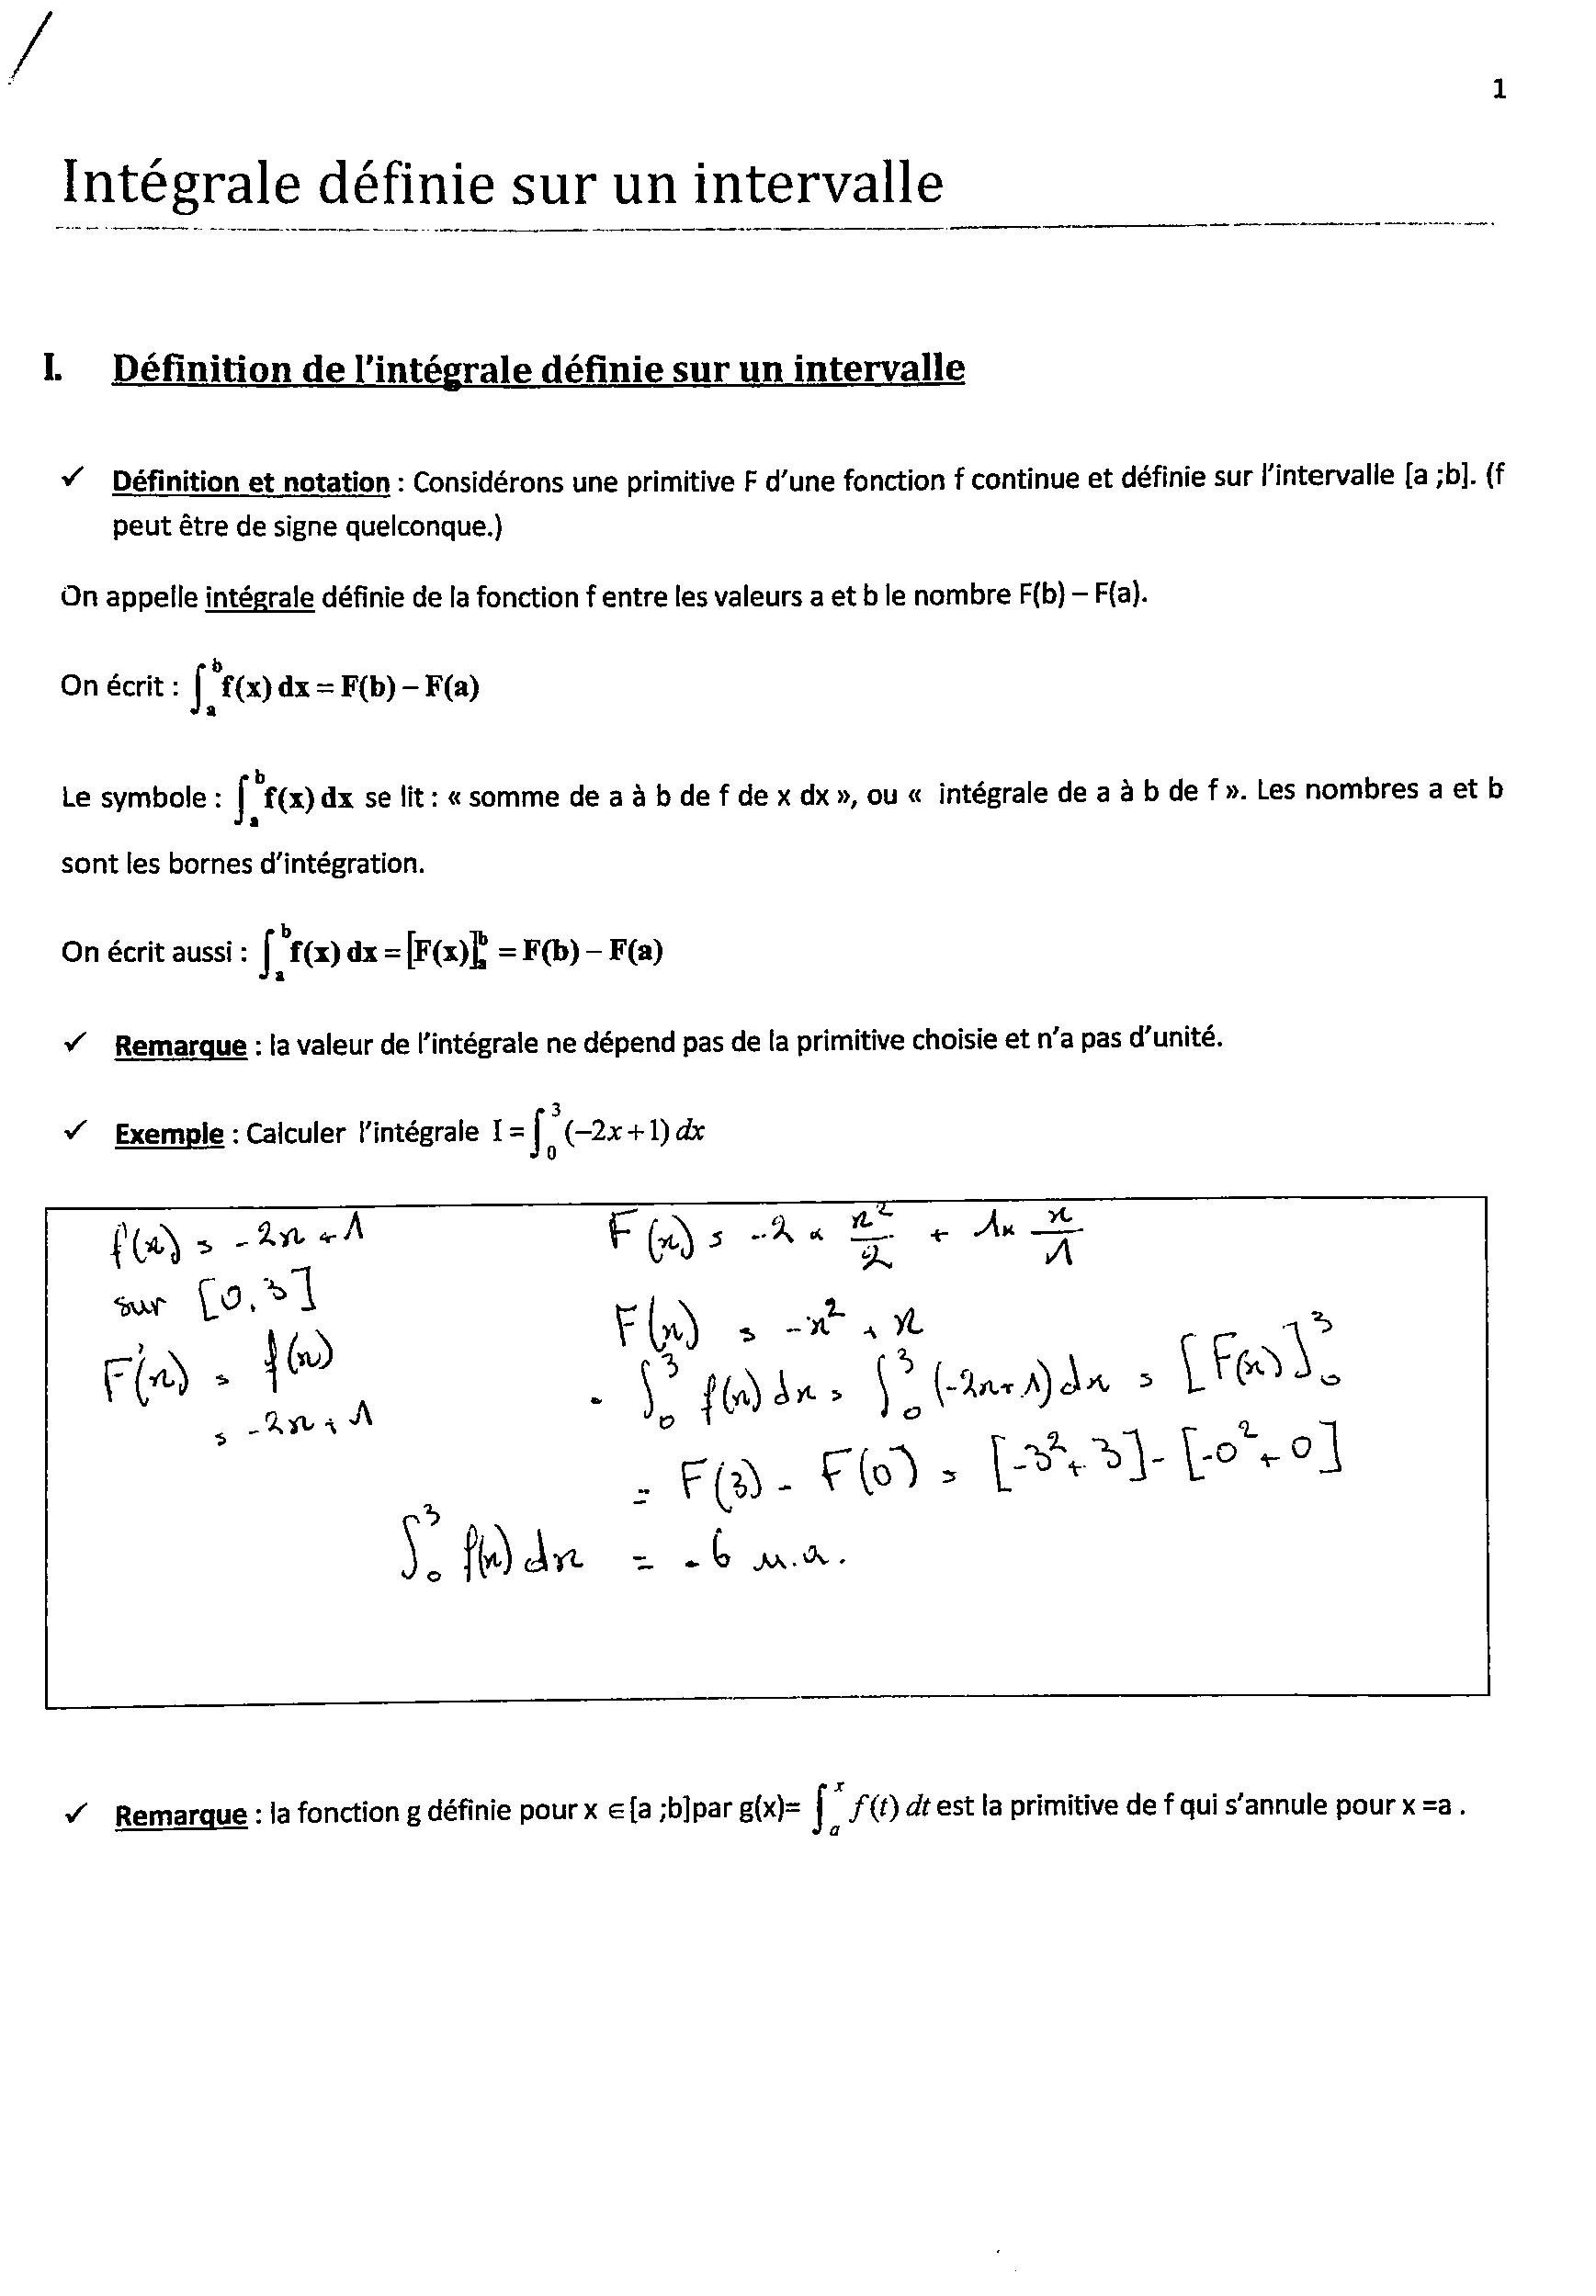 1
Intégrale définie sur un intervalle
I. Définition de l'intégrale définie sur un intervalle
✓ Définition et notation : Considérons une primitive F d'une fonction f continue et définie sur l'intervalle [a ;b]. (f
peut être de signe quelconque.)
On appelle intégrale définie de la fonction f entre les valeurs a et b le nombre F(b) – F(a).
On écrit : ∫_a^b f(x) dx = F(b) – F(a)
Le symbole : ∫_a^b f(x) dx se lit : « somme de a à b de f de x dx », ou « intégrale de a à b de f ». Les nombres a et b
sont les bornes d'intégration.
On écrit aussi : ∫_a^b f(x) dx = [F(x)]_a^b = F(b) – F(a)
✓ Remarque : la valeur de l'intégrale ne dépend pas de la primitive choisie et n'a pas d'unité.
✓ Exemple : Calculer l'intégrale I = ∫_0^3 (–2x + 1) dx
f(x) = -2x + 1
sur [0, 3]
F'(x) = f(x)
= -2x + 1
F(x) = -2 × x²/2 + 1 × x/1
F(x) = -x² + x
- ∫_0^3 f(x) dx = ∫_0^3 (-2x + 1) dx = [F(x)]_0^3
= F(3) - F(0) = [-3² + 3] - [-0² + 0]
∫_0^3 f(x) dx = -6 u.a.
✓ Remarque : la fonction g définie pour x ∈ [a ;b] par g(x)= ∫_a^x f(t) dt est la primitive de f qui s'annule pour x =a .